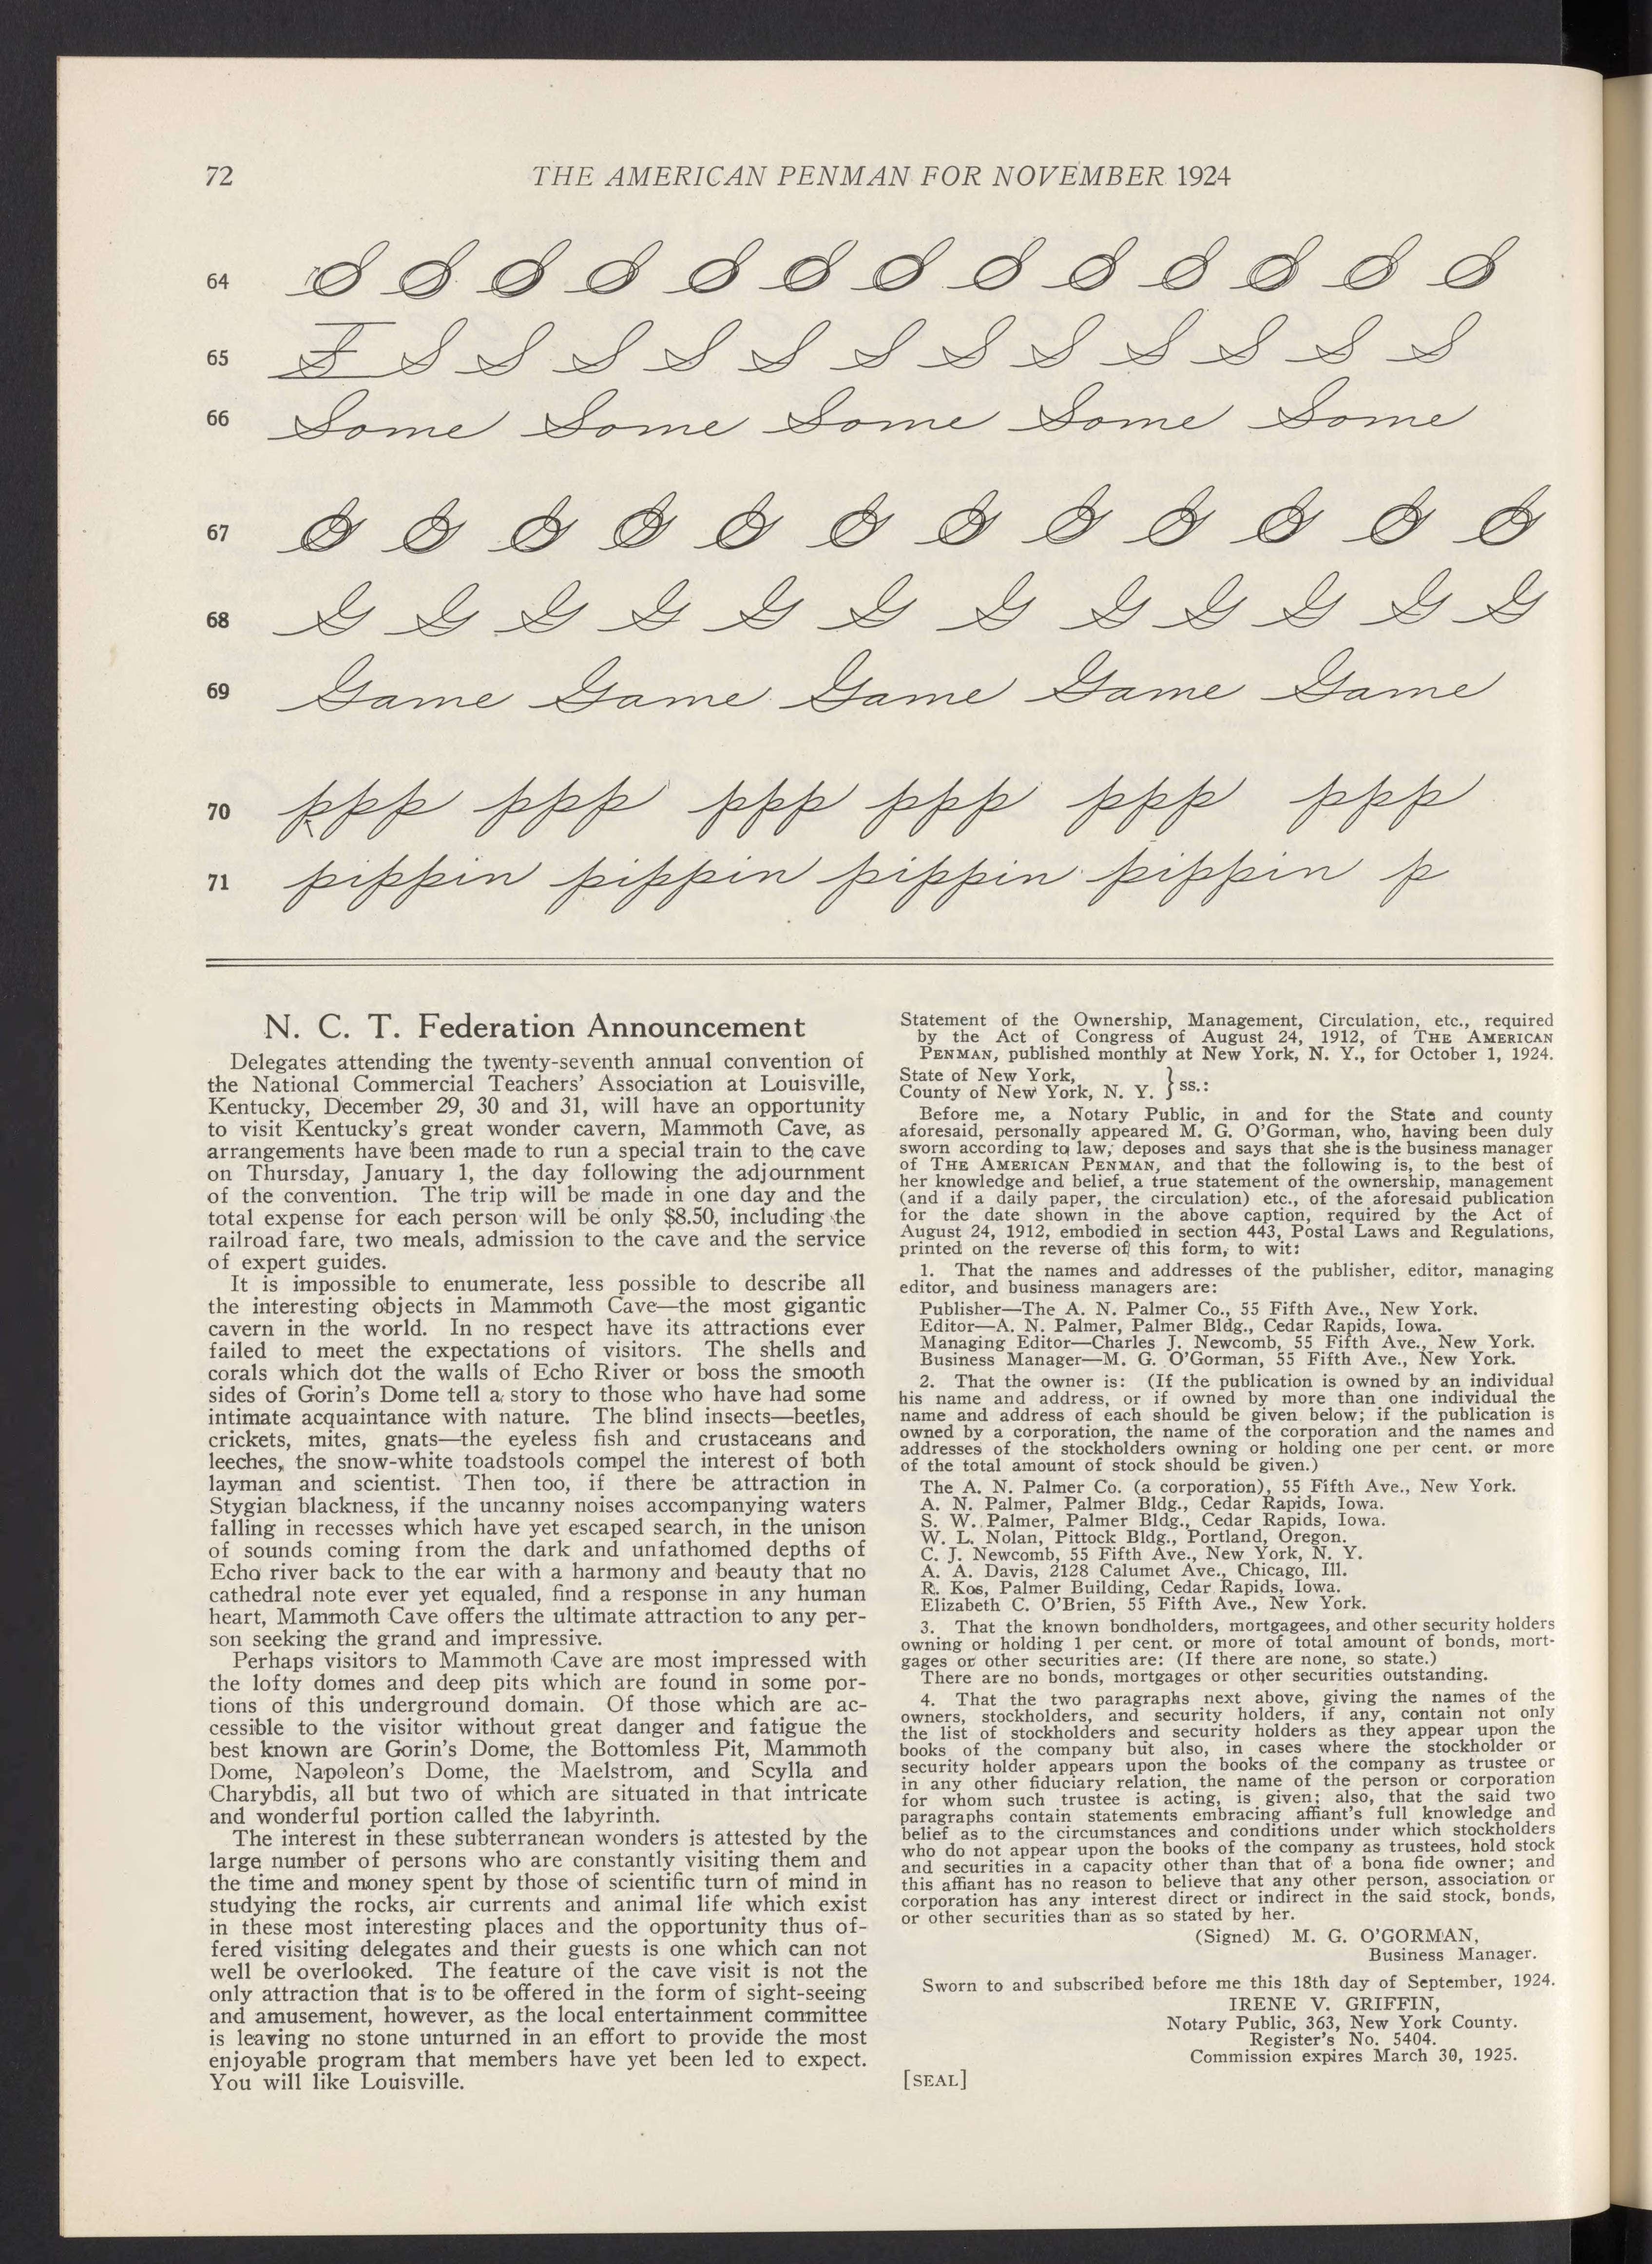 72
THE AMERICAN PENMAN FOR NOVEMBER 1924
64
65
S S S S S S S S S S S S S
66
Some Some Some Some Some
67
68
G G G G G G G G G G G G
69
Game Game Game Game Game
70
ppp ppp ppp ppp ppp ppp
71
pippin pippin pippin pippin p
N. C. T. Federation Announcement
Delegates attending the twenty-seventh annual convention of
the National Commercial Teachers' Association at Louisville,
Kentucky, December 29, 30 and 31, will have an opportunity
to visit Kentucky's great wonder cavern, Mammoth Cave, as
arrangements have been made to run a special train to the cave
on Thursday, January 1, the day following the adjournment
of the convention. The trip will be made in one day and the
total expense for each person will be only $8.50, including the
railroad fare, two meals, admission to the cave and the service
of expert guides.
It is impossible to enumerate, less possible to describe all
the interesting objects in Mammoth Cave—the most gigantic
cavern in the world. In no respect have its attractions ever
failed to meet the expectations of visitors. The shells and
corals which dot the walls of Echo River or boss the smooth
sides of Gorin's Dome tell a story to those who have had some
intimate acquaintance with nature. The blind insects—beetles,
crickets, mites, gnats—the eyeless fish and crustaceans and
leeches, the snow-white toadstools compel the interest of both
layman and scientist. Then too, if there be attraction in
Stygian blackness, if the uncanny noises accompanying waters
falling in recesses which have yet escaped search, in the unison
of sounds coming from the dark and unfathomed depths of
Echo river back to the ear with a harmony and beauty that no
cathedral note ever yet equaled, find a response in any human
heart, Mammoth Cave offers the ultimate attraction to any per-
son seeking the grand and impressive.
Perhaps visitors to Mammoth Cave are most impressed with
the lofty domes and deep pits which are found in some por-
tions of this underground domain. Of those which are ac-
cessible to the visitor without great danger and fatigue the
best known are Gorin's Dome, the Bottomless Pit, Mammoth
Dome, Napoleon's Dome, the Maelstrom, and Scylla and
Charybdis, all but two of which are situated in that intricate
and wonderful portion called the labyrinth.
The interest in these subterranean wonders is attested by the
large number of persons who are constantly visiting them and
the time and money spent by those of scientific turn of mind in
studying the rocks, air currents and animal life which exist
in these most interesting places and the opportunity thus of-
fered visiting delegates and their guests is one which can not
well be overlooked. The feature of the cave visit is not the
only attraction that is to be offered in the form of sight-seeing
and amusement, however, as the local entertainment committee
is leaving no stone unturned in an effort to provide the most
enjoyable program that members have yet been led to expect.
You will like Louisville.
Statement of the Ownership, Management, Circulation, etc., required
by the Act of Congress of August 24, 1912, of THE AMERICAN
PENMAN, published monthly at New York, N. Y., for October 1, 1924.
State of New York,
County of New York, N. Y. } ss.:
Before me, a Notary Public, in and for the State and county
aforesaid, personally appeared M. G. O'Gorman, who, having been duly
sworn according to law, deposes and says that she is the business manager
of THE AMERICAN PENMAN, and that the following is, to the best of
her knowledge and belief, a true statement of the ownership, management
(and if a daily paper, the circulation) etc., of the aforesaid publication
for the date shown in the above caption, required by the Act of
August 24, 1912, embodied in section 443, Postal Laws and Regulations,
printed on the reverse of this form, to wit:
1. That the names and addresses of the publisher, editor, managing
editor, and business managers are:
Publisher—The A. N. Palmer Co., 55 Fifth Ave., New York.
Editor—A. N. Palmer, Palmer Bldg., Cedar Rapids, Iowa.
Managing Editor—Charles J. Newcomb, 55 Fifth Ave., New York.
Business Manager—M. G. O'Gorman, 55 Fifth Ave., New York.
2. That the owner is: (If the publication is owned by an individual
his name and address, or if owned by more than one individual the
name and address of each should be given below; if the publication is
owned by a corporation, the name of the corporation and the names and
addresses of the stockholders owning or holding one per cent. or more
of the total amount of stock should be given.)
The A. N. Palmer Co. (a corporation), 55 Fifth Ave., New York.
A. N. Palmer, Palmer Bldg., Cedar Rapids, Iowa.
S. W. Palmer, Palmer Bldg., Cedar Rapids, Iowa.
W. L. Nolan, Pittock Bldg., Portland, Oregon.
C. J. Newcomb, 55 Fifth Ave., New York, N. Y.
A. A. Davis, 2128 Calumet Ave., Chicago, Ill.
R. Kos, Palmer Building, Cedar Rapids, Iowa.
Elizabeth C. O'Brien, 55 Fifth Ave., New York.
3. That the known bondholders, mortgagees, and other security holders
owning or holding 1 per cent. or more of total amount of bonds, mort-
gages or other securities are: (If there are none, so state.)
There are no bonds, mortgages or other securities outstanding.
4. That the two paragraphs next above, giving the names of the
owners, stockholders, and security holders, if any, contain not only
the list of stockholders and security holders as they appear upon the
books of the company but also, in cases where the stockholder or
security holder appears upon the books of the company as trustee or
in any other fiduciary relation, the name of the person or corporation
for whom such trustee is acting, is given; also, that the said two
paragraphs contain statements embracing affiant's full knowledge and
belief as to the circumstances and conditions under which stockholders
who do not appear upon the books of the company as trustees, hold stock
and securities in a capacity other than that of a bona fide owner; and
this affiant has no reason to believe that any other person, association or
corporation has any interest direct or indirect in the said stock, bonds,
or other securities than as so stated by her.
(Signed) M. G. O'GORMAN,
Business Manager.
Sworn to and subscribed before me this 18th day of September, 1924.
IRENE V. GRIFFIN,
Notary Public, 363, New York County.
Register's No. 5404.
Commission expires March 30, 1925.
[SEAL]